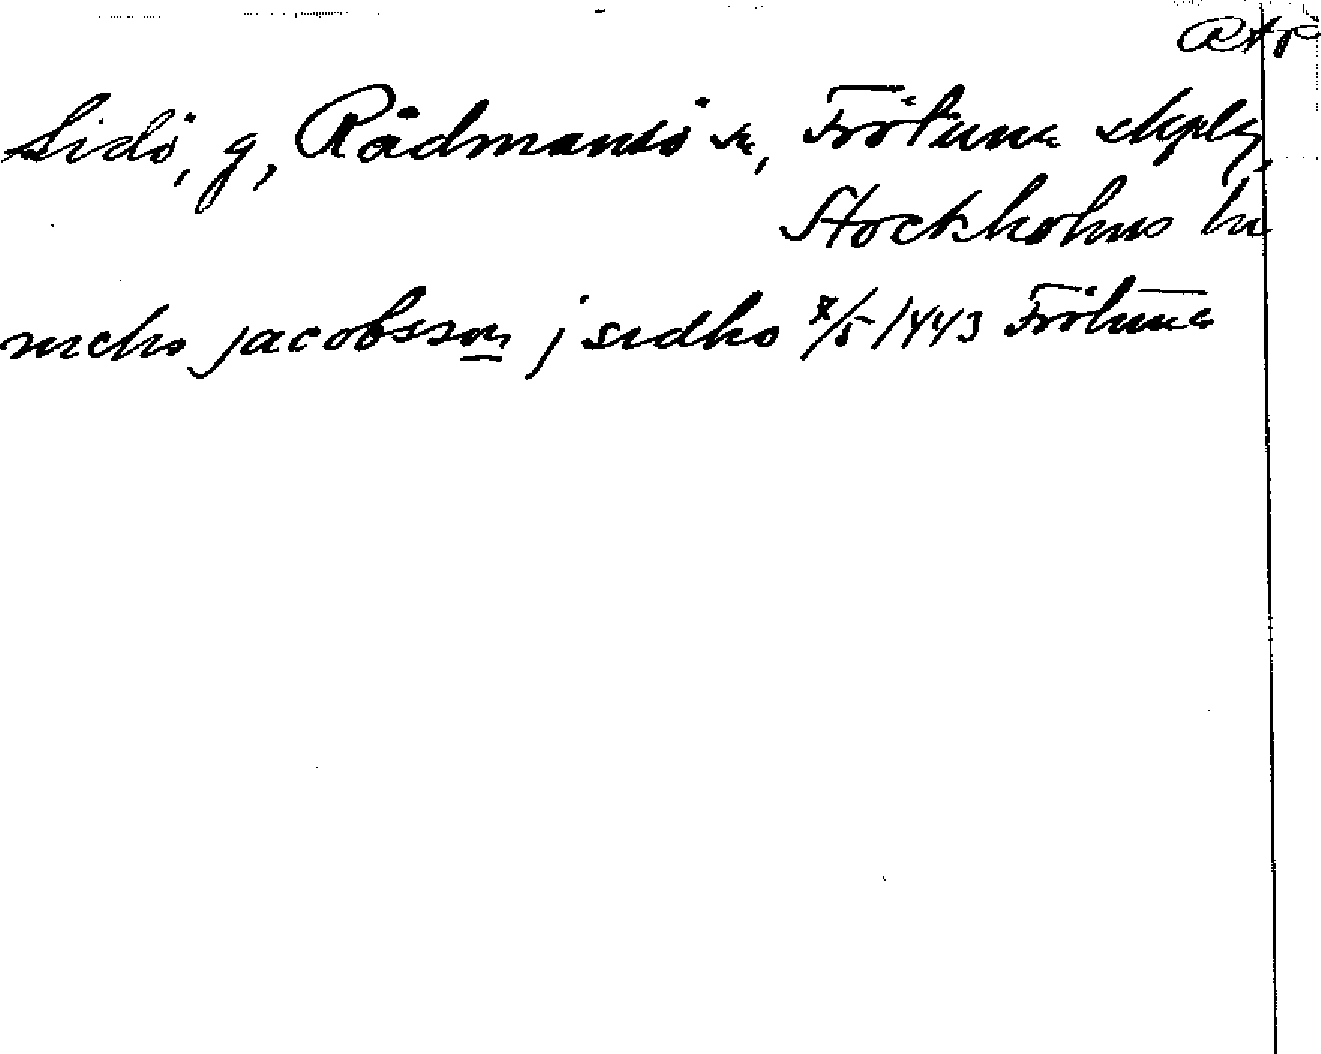 Sidö, g, Rådmansö sn, Frötuna skeplg,
Stockholms län
jacobsson j sidhø 8/5 1443 Frötuna